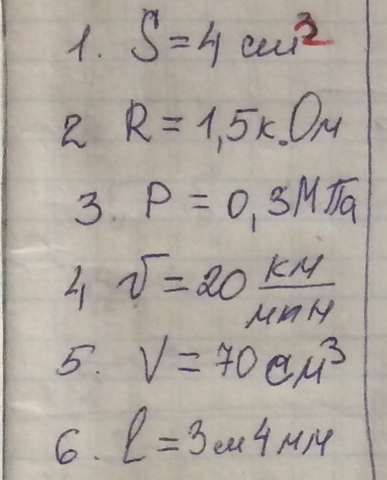 1. S = 4 см²
2 R = 1,5 к.Ом
3. P = 0,3 МПа
4, v = 20 км/мин
5. V = 70 см³
6. l = 3м 4 мм